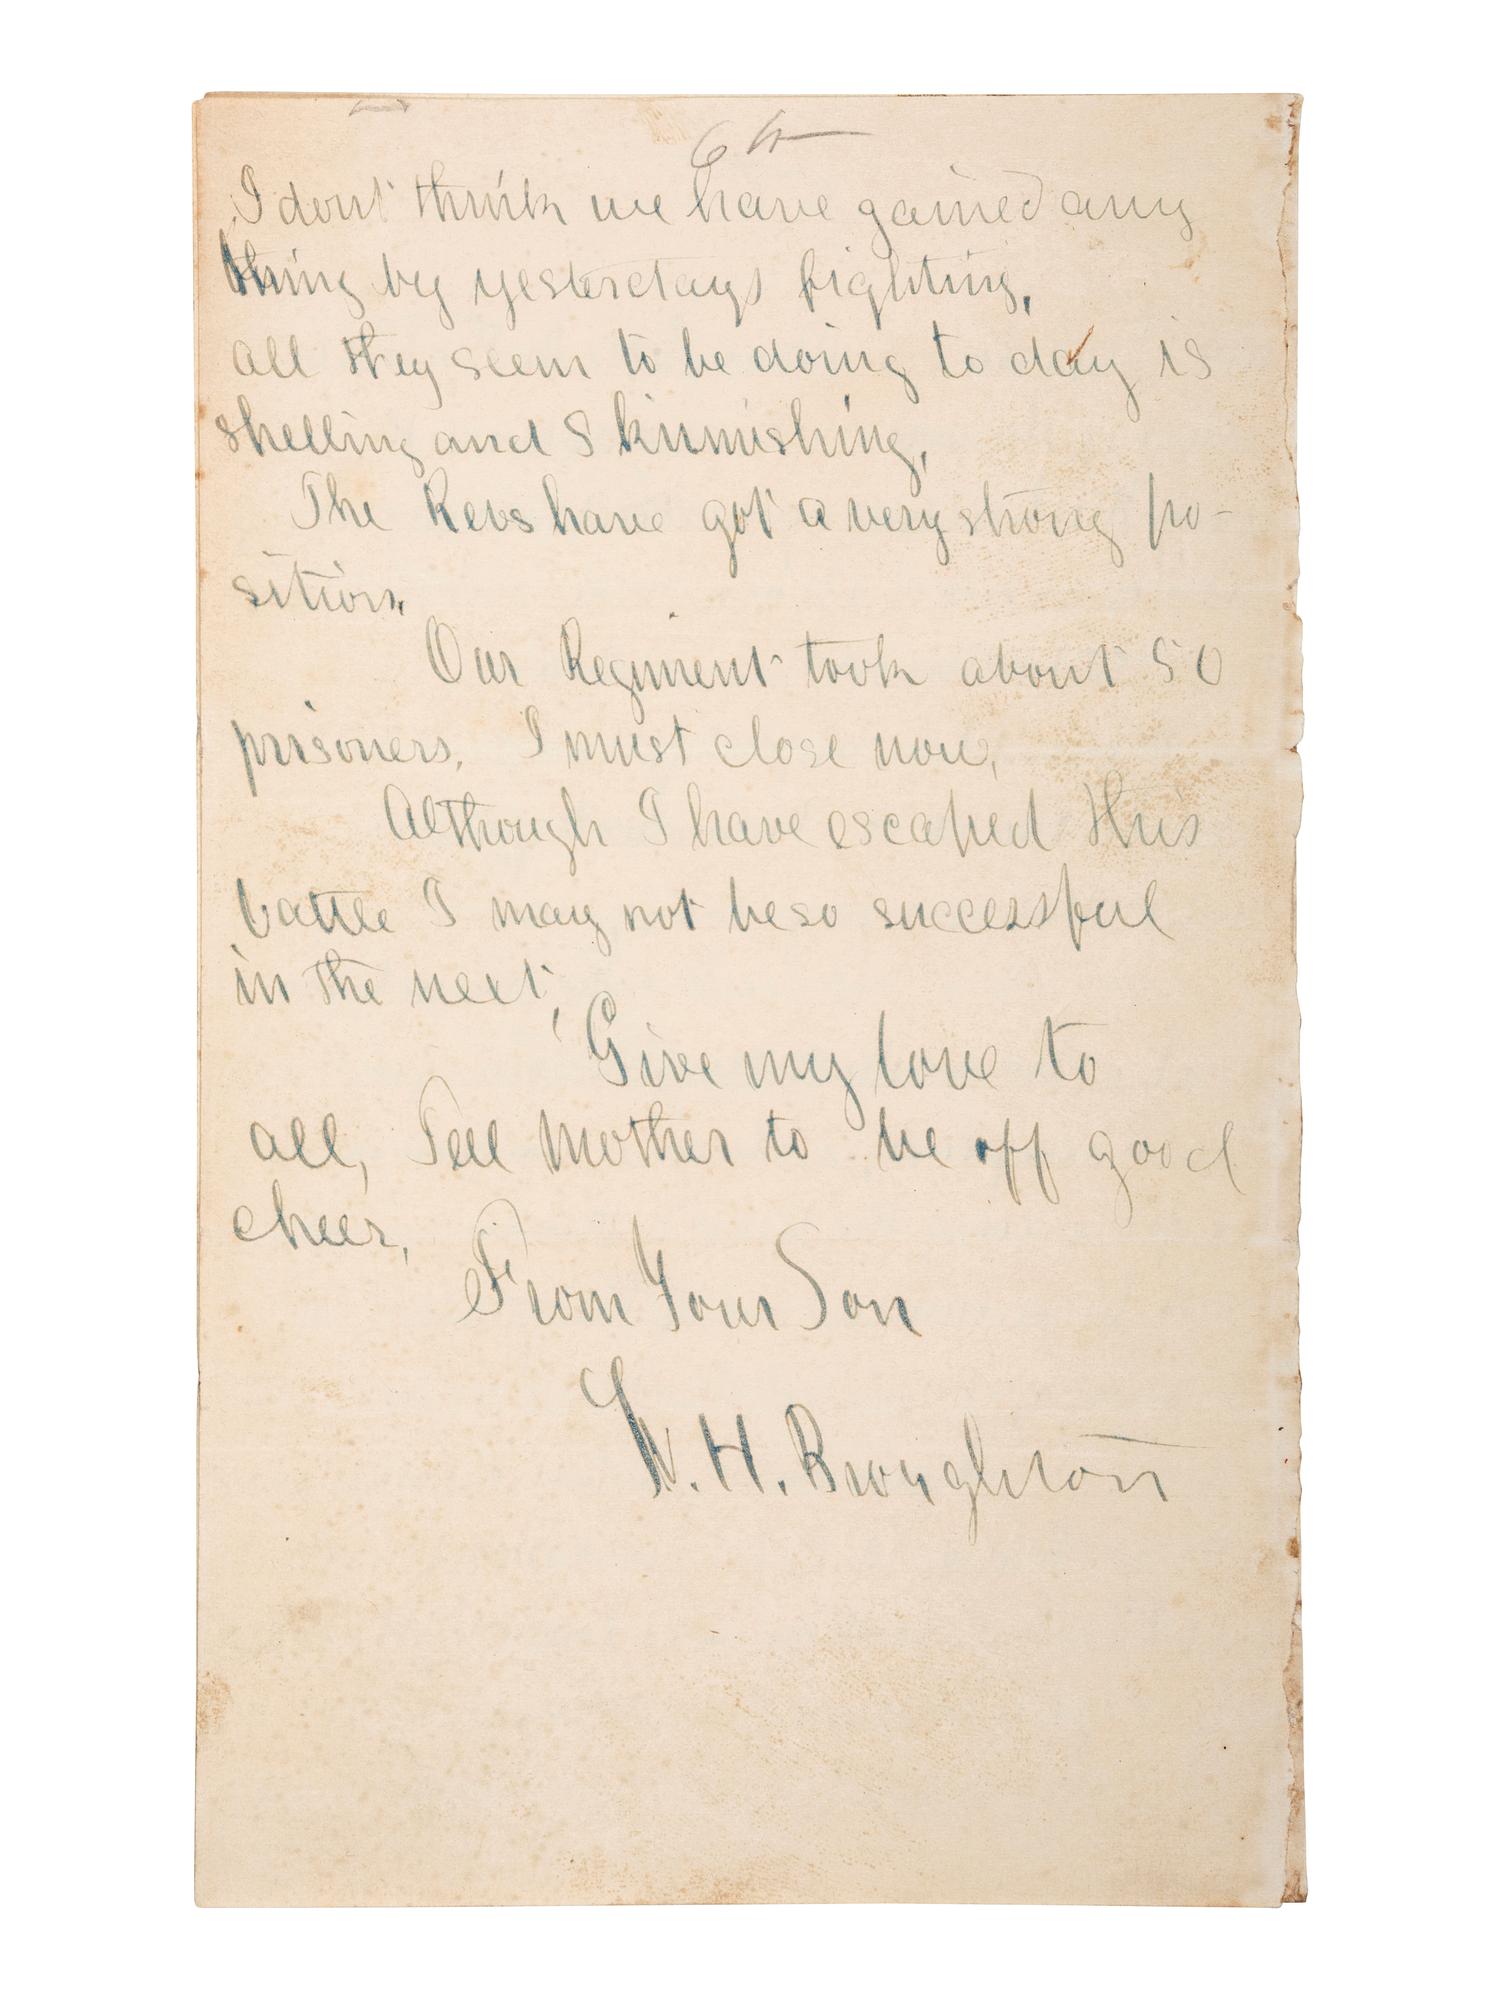 6th
I dont think we have gained any
thing by yesterdays fighting,
all they seem to be doing to day is
shelling and Skirmishing,
The Rebs have got a very strong po-
sition,
Our Regiment took about 50
prisoners, I must close now,
Although I have escaped this
battle I may not be so successful
in the next,
Give my love to
all, Tell Mother to be off good
cheer,
From Your Son
W. H. Broughton